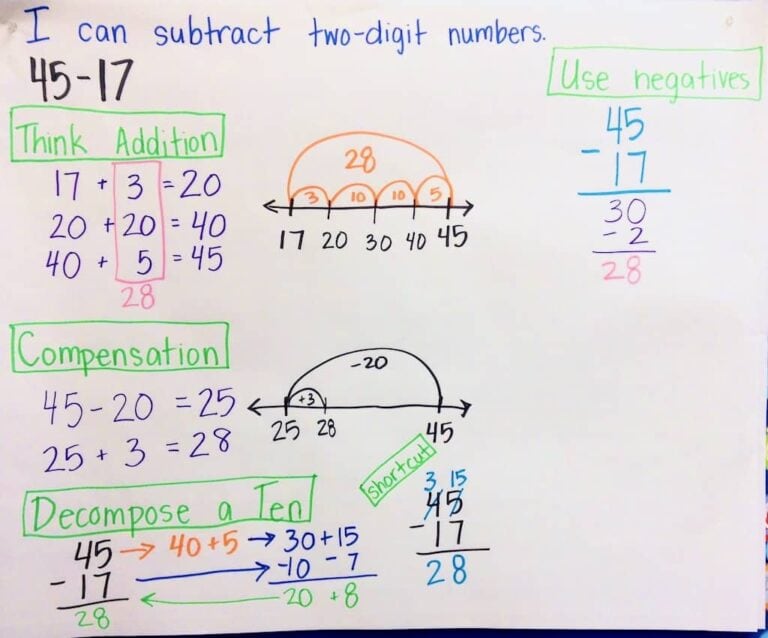 I can subtract two-digit numbers.
45-17
Think Addition
17 + 3 = 20
20 + 20 = 40
40 + 5 = 45
28
28
3 10 10 5
17 20 30 40 45
Use negatives
45
- 17
30
- 2
28
Compensation
45 - 20 = 25
25 + 3 = 28
-20
+3
25 28 45
Decompose a Ten
45 → 40+5 → 30+15
- 17 → -10 - 7
28 ← 20 + 8
shortcut
3 15
45
- 17
28